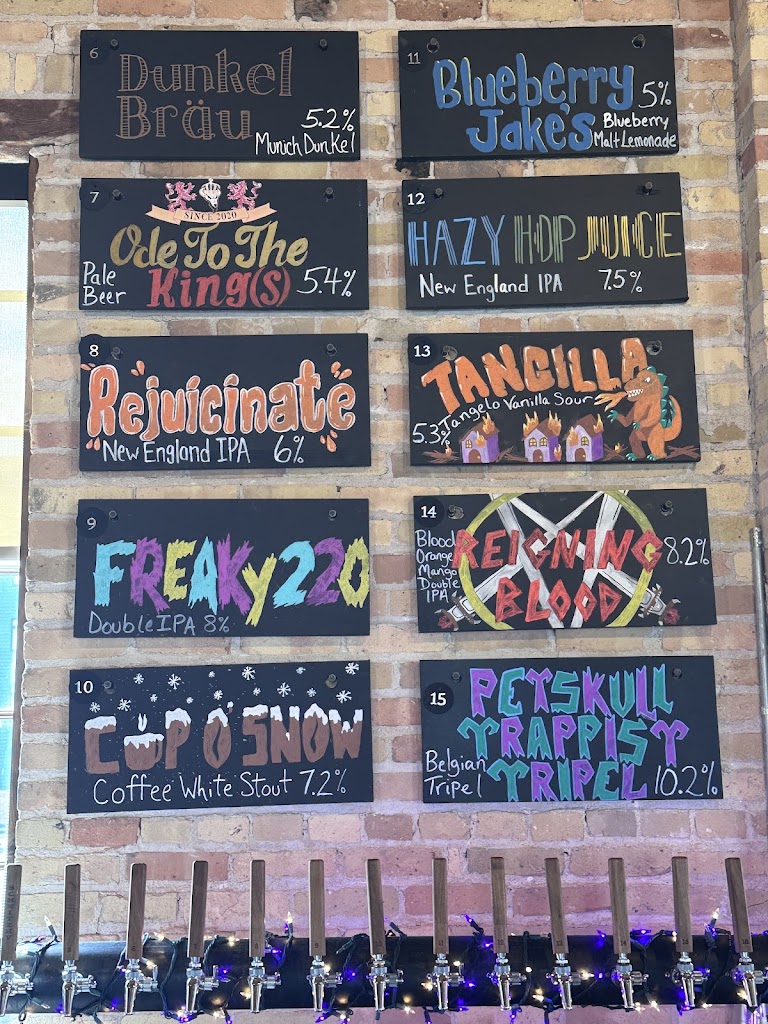 6
Dunkel
Bräu
5.2%
Munich Dunkel
7
SINCE 2020
Ode To The
King(s)
Pale
Beer
5.4%
8
Rejuicinate
New England IPA 6%
9
FREAKy220
Double IPA 8%
10
CUP O' SNOW
Coffee White Stout 7.2%
11
Blueberry
Jake's
5%
Blueberry
Malt Lemonade
12
HAZY HOP JUICE
New England IPA 7.5%
13
TANGILLA
Tangelo Vanilla Sour
5.3%
14
Blood
Orange
Mango
Double
IPA
REIGNING
BLOOD
8.2%
15
PETSKULL
TRAPPIST
TRIPEL
Belgian
Tripel
10.2%